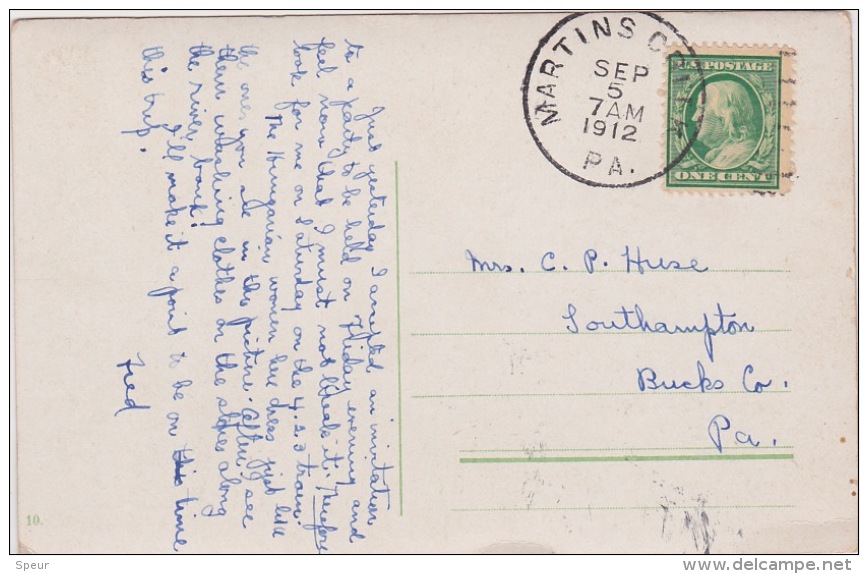 MARTINS CREEK
SEP
5
7AM
1912
PA.
U.S. POSTAGE
ONE CENT
Just yesterday I accepted an invitation
to a party to be held on Friday evening and
feel now that I must not break it. Therefore
look for me on Saturday on the 4.23 train.
The Hungarian women here dress just like
the ones you see in this picture. Often I see
them washing clothes on the stones along
the river bank!
I'll make it a point to be on time
this trip.
Fred
Mrs. C. P. Huse
Southampton
Bucks Co.
Pa.
10.
Speur
delcampe.net